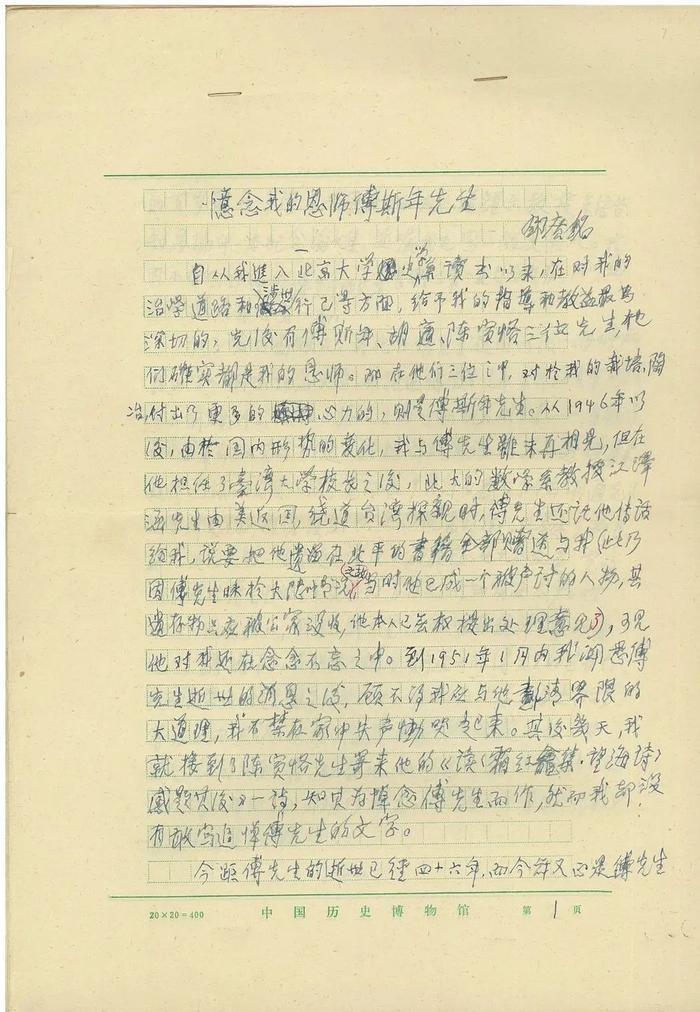 憶念我的恩师傅斯年先生
邓广铭
一
自从我進入北京大学史学系读书以来，在对我的
治学道路和涉世行己等方面，给予我的指導和教益最为
深切的，先后有傅斯年、胡適、陈寅恪三位先生，他
们確实都是我的恩师。而在他们三位之中，对於我的栽培、陶
冶，付出了更多的心力的，则是傅斯年先生。从1946年以
後，由於国内形势的变化，我与傅先生雖未再相見，但在
他担任了臺湾大学校长之後，北大的数学系教授江澤
涵先生由美返国，绕道台湾探親时，傅先生还託他传话
给我，说要把他遺留在北平的書籍全部赠送与我（此乃
因傅先生昧於大陸情况之故，当时他已成一个被声讨的人物，其
遺存物品应被公家没收，他本人已无权提出处理意见了），可见
他对我还在念念不忘之中。到1951年1月内我闻悉傅
先生逝世的消息之後，顾不得我应与他劃清界限的
大道理，我不禁在家中失声恸哭起来。其後幾天，我
就接到了陈寅恪先生寄来他的《读〈霜红龕集·望海诗〉
感题其後》一诗，知其为悼念傅先生而作，然而我却没
有敢写追悼傅先生的文字。
今距傅先生的逝世已经四十六年，而今年又正是傅先生
20×20=400 中国历史博物馆 第1页